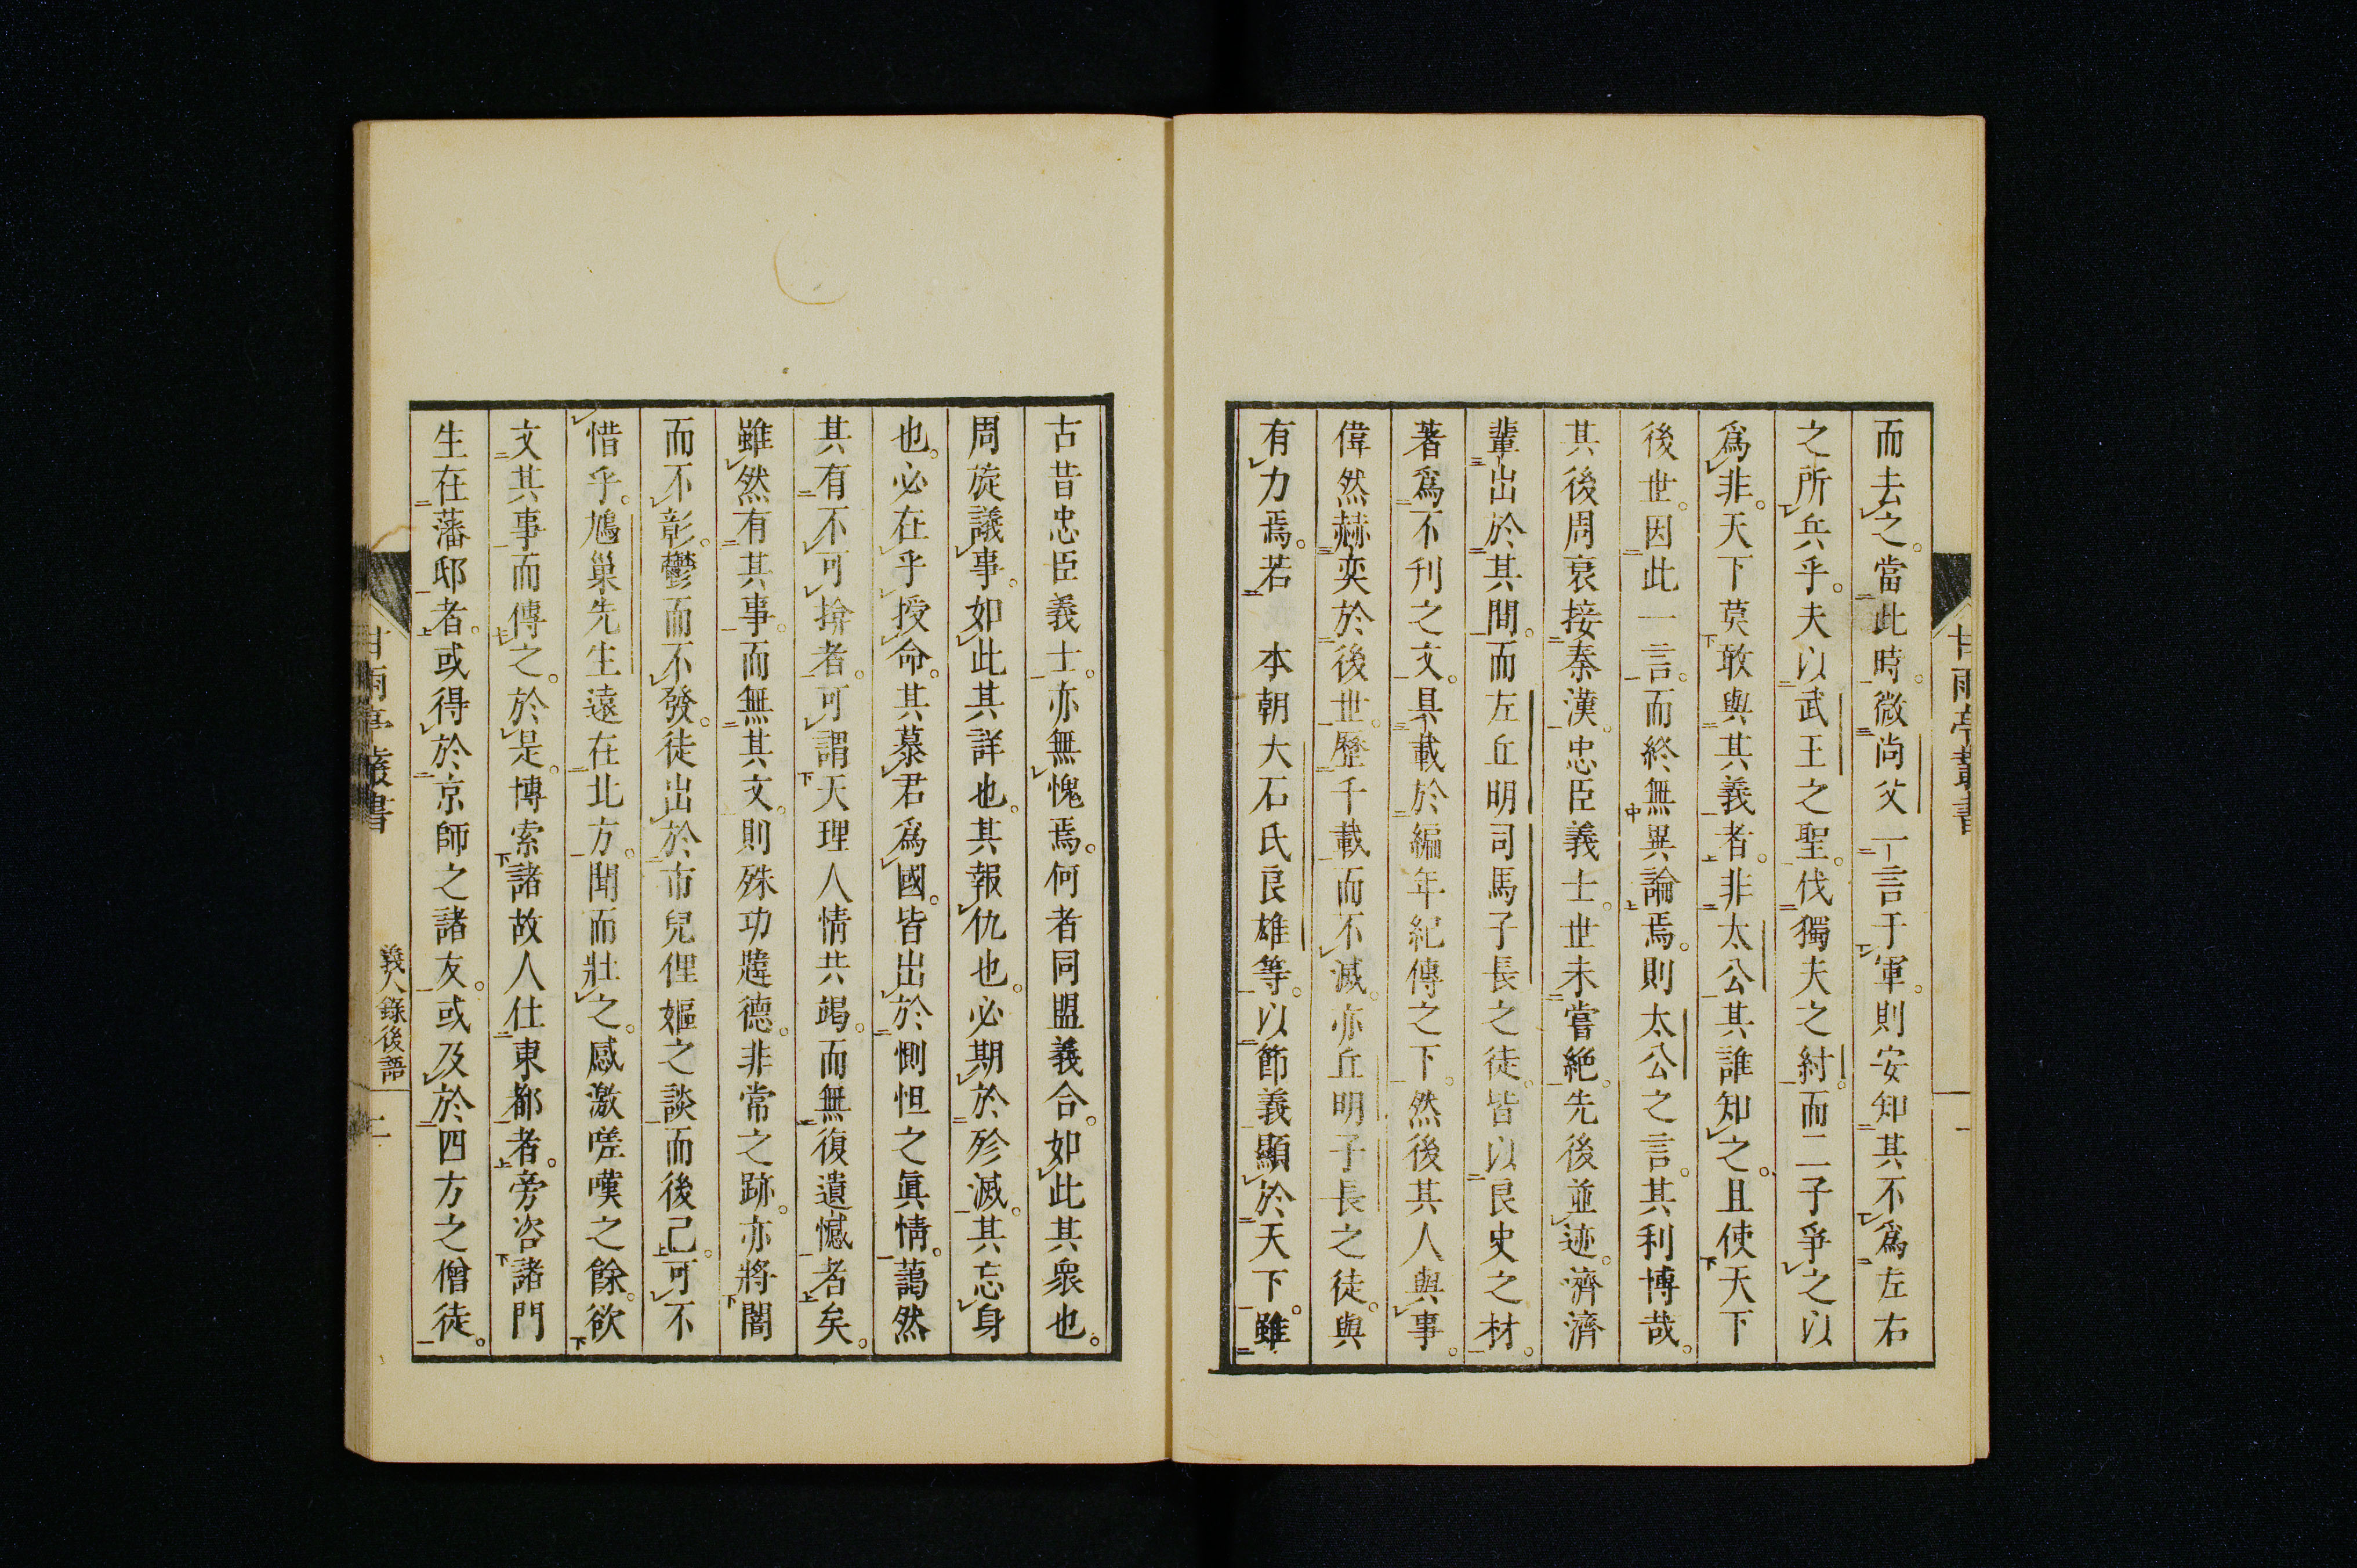 甘雨亭叢書
一
而去之。當此時。微尚父一言于軍。則安知其不爲左右
之所兵乎。夫以武王之聖。伐獨夫之紂。而二子爭之以
爲非。天下莫敢與其義者。非太公其誰知之。且使天下
後世。因此一言。而終無異論焉。則太公之言。其利博哉。
其後周衰接秦漢。忠臣義士。世未嘗絶。先後並迹。濟濟
輩出於其間。而左丘明司馬子長之徒。皆以良史之材。
著爲不刊之文。具載於編年紀傳之下。然後其人與事。
偉然赫奕於後世。歷千載而不滅。亦丘明子長之徒。與
有力焉。若 本朝大石氏良雄等。以節義顯於天下。雖
古昔忠臣義士。亦無愧焉。何者同盟義合。如此其衆也。
周旋議事。如此其詳也。其報仇也。必期於殄滅。其忘身
也。必在乎授命。其慕君爲國。皆出於惻怛之眞情。藹然
其有不可揜者。可謂天理人情共竭。而無復遺憾者矣。
雖然有其事。而無其文。則殊功韙德。非常之跡。亦將闇
而不彰。鬱而不發。徒出於市兒俚嫗之談而後已。可不
惜乎。鳩巢先生遠在北方。聞而壯之。感激嗟嘆之餘。欲
文其事而傳之。於是。博索諸故人仕東都者。旁咨諸門
生在藩邸者。或得於京師之諸友。或及於四方之僧徒。
甘雨亭叢書
義人錄後語
二